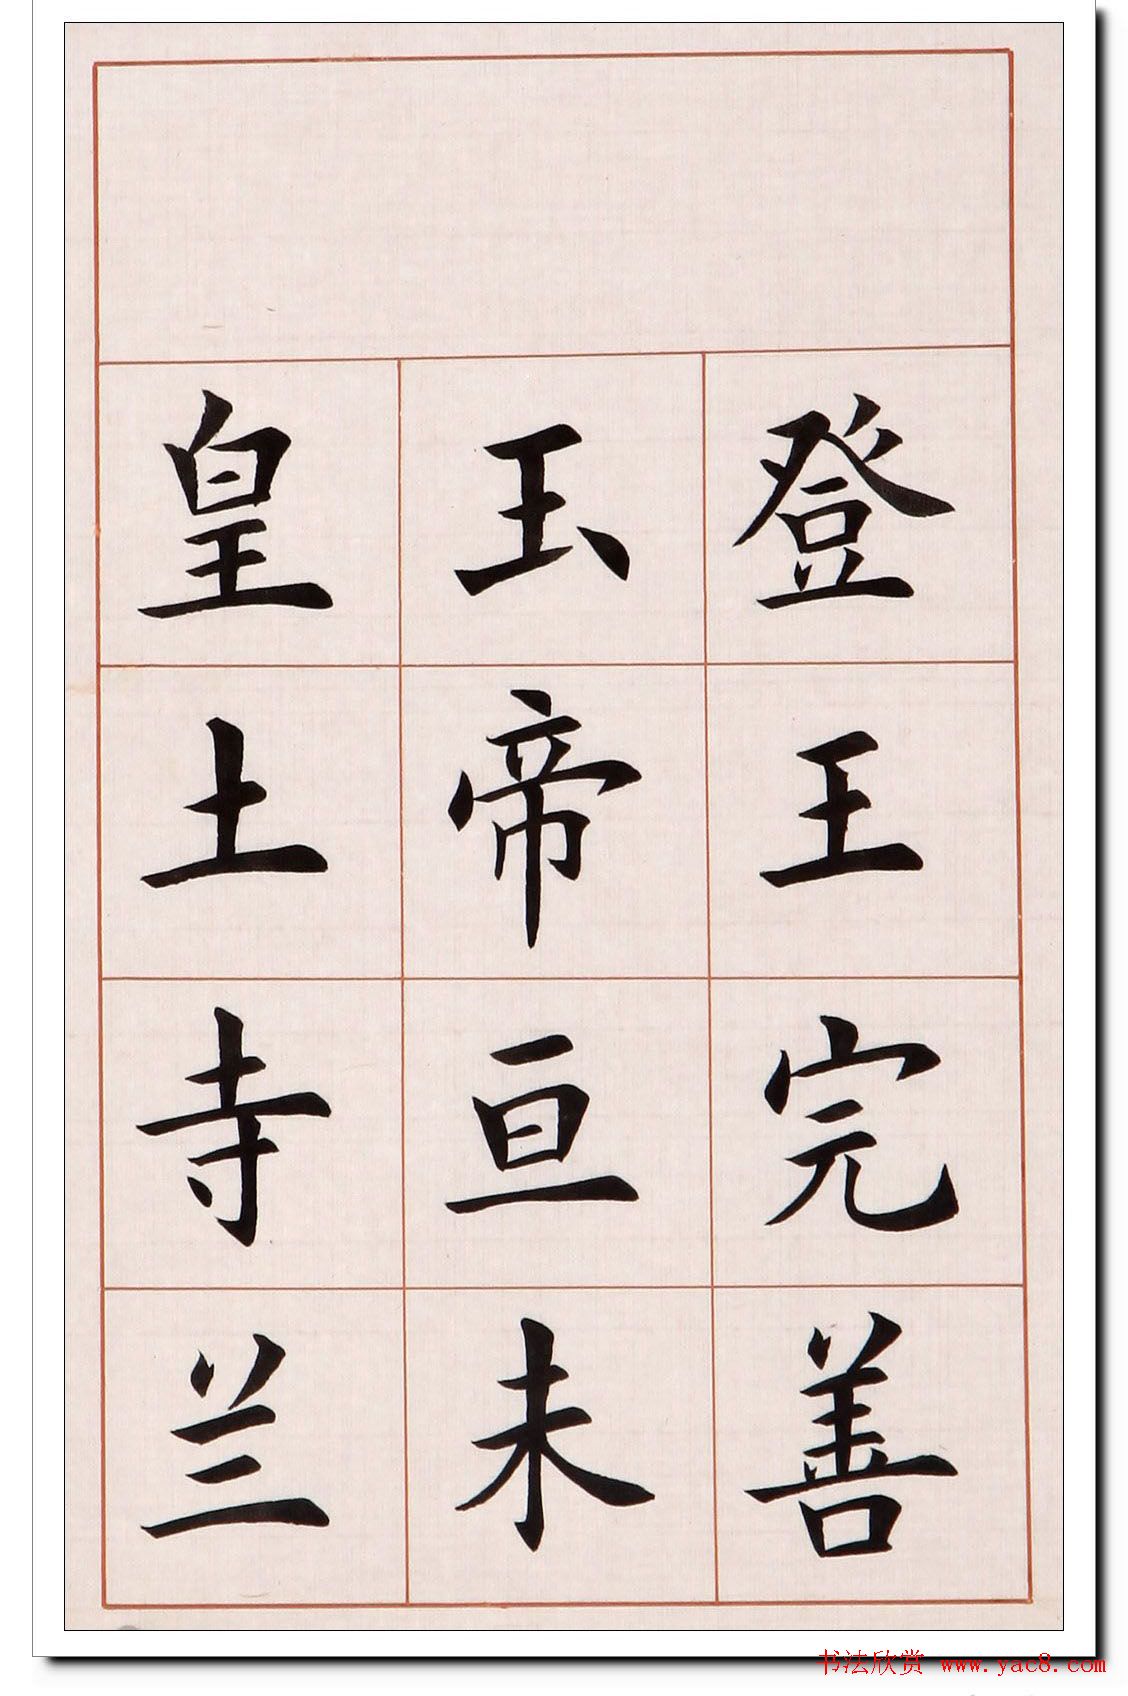 登王完善
玉帝亘未
皇土寺兰
书法欣赏 www.yac8.com